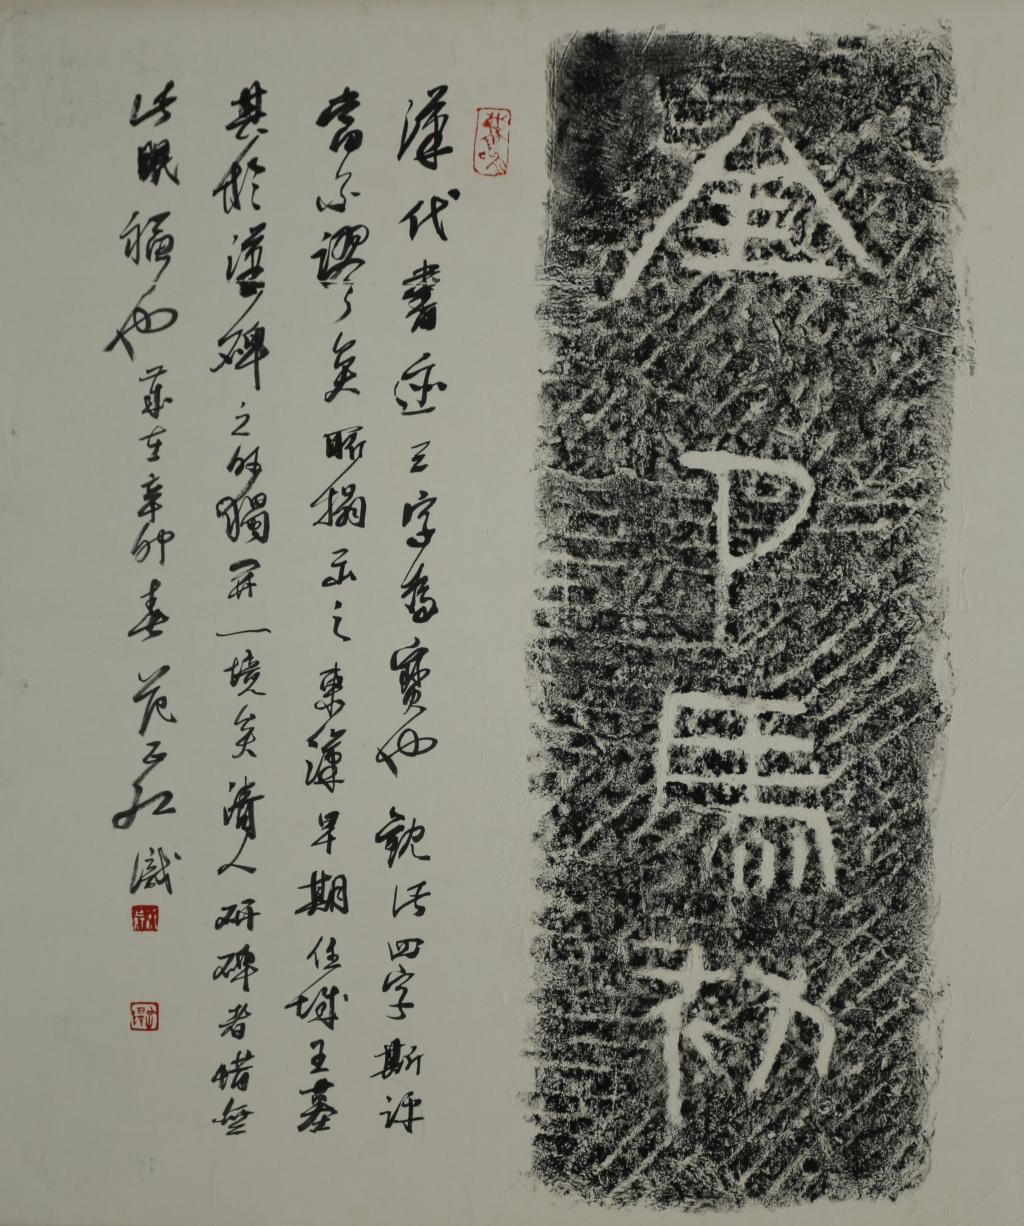 金卩馬
漢代書迹三字為寶也觀此四字斯評
當不謬矣搨出之東漢早期任城王墓
其於漢碑之外獨開一境矣清人研碑者惜無
此眼福也歲在辛卯春范正紅識